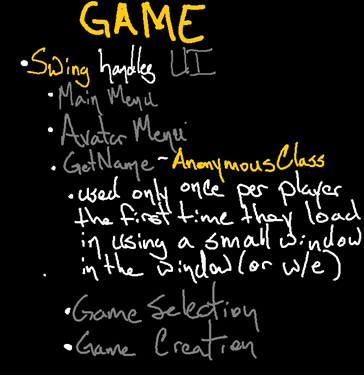 GAME
• Swing handles UI
• Main Menu
• Avatar Menu
• GetName ~ AnonymousClass
• used only once per player
the first time they load
in using a small window
in the window (or w/e)
• Game Selection
• Game Creation